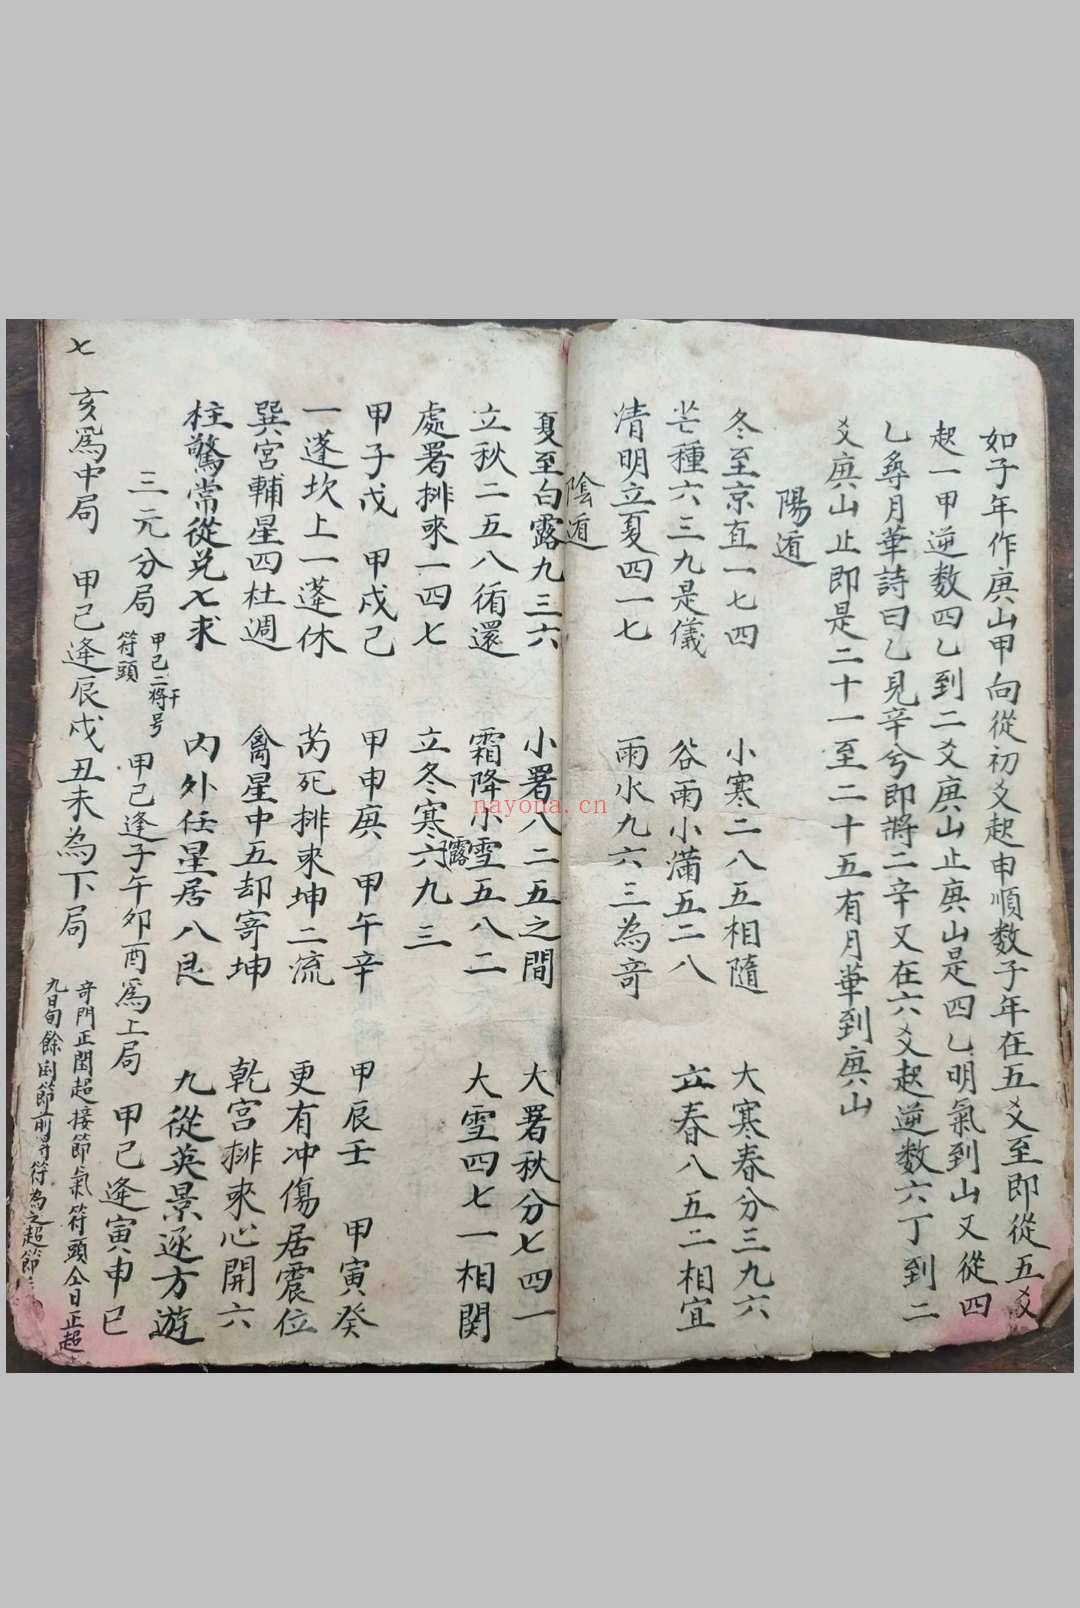 如子年作庚山甲向從初爻起申順数子年在五爻至即從五爻
起一甲逆数四乙到二爻庚山止庚山是四乙明氣到山又從四
乙尋月華詩曰乙見辛兮即將二辛又在六爻起逆数六丁到二
爻庚山止即是二十一至二十五有月華到庚山
陽遁
冬至京直一七四 小寒二八五相隨 大寒春分三九六
芒種六三九是儀 谷雨小滿五二八 立春八五二相宜
清明立夏四一七 雨水九六三為奇
陰遁
夏至白露九三六 小署八二五之間 大署秋分七四一
立秋二五八循還 霜降小雪五八二 大雪四七一相関
處署排來一四七 立冬寒露六九三
甲子戊 甲戌己 甲申庚 甲午辛 甲辰壬 甲寅癸
一蓬坎上一蓬休 芮死排來坤二流 更有冲傷居震位
巽宮輔星四杜週 禽星中五却寄坤 乾宮排來心開六
柱驚常從兌七求 內外任星居八艮 九從英景逐方遊
三元分局 甲己二干將号符頭 甲己逢子午卯酉為上局 甲己逢寅申巳
亥為中局 甲己逢辰戌丑未為下局 奇門正閏超接節氣符頭仝日正超
九日旬餘閏節前符為之超節
七
nayona.cn